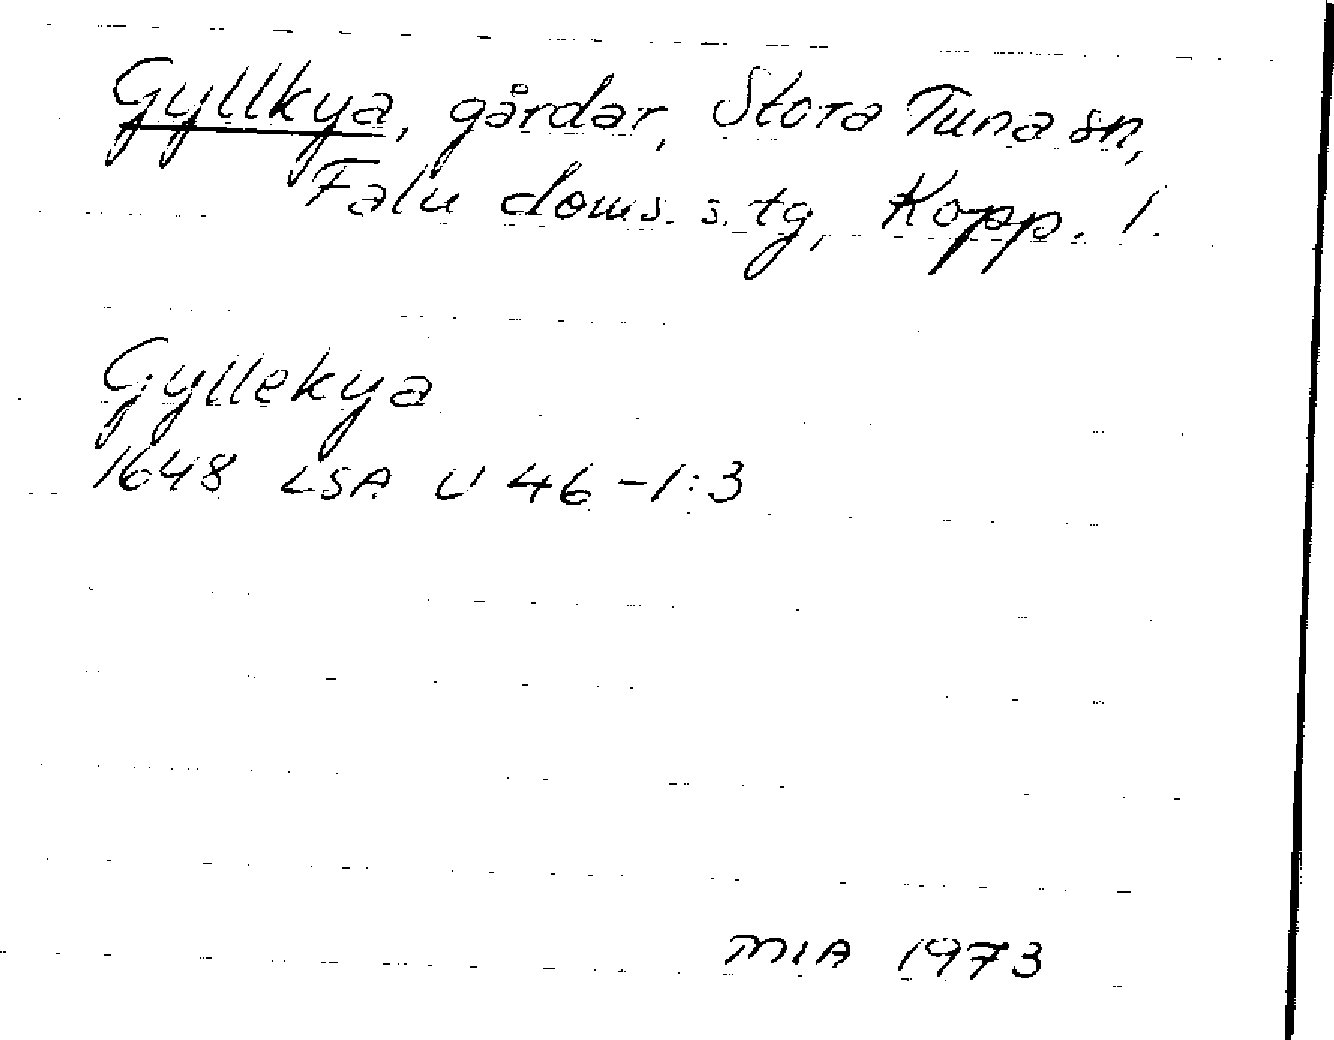 Gyllkya, gårdar, Stora Tuna sn,
Falu doms. s. tg, Kopp. l.
Gyllekya
1648 LSA U 46-1:3
MIA 1973